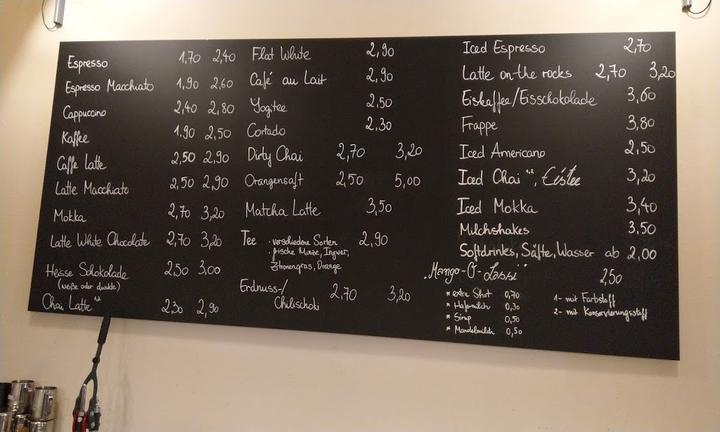 Espresso 1,70 2,40
Espresso Macchiato 1,90 2,60
Cappuccino 2,40 2,80
Kaffee 1,90 2,50
Caffe Latte 2,50 2,90
Latte Macchiato 2,50 2,90
Mokka 2,70 3,20
Latte White Chocolate 2,70 3,20
Heisse Schokolade 2,50 3,00
(weiße oder dunkle)
Chai Latte 2,30 2,90
Flat White 2,90
Café au Lait 2,90
Yogitee 2,50
Cortado 2,30
Dirty Chai 2,70 3,20
Orangensaft 2,50 5,00
Matcha Latte 3,50
Tee · verschiedene Sorten 2,90
· frische Minze, Ingwer,
Zitronengras, Orange
Erdnuss-/
Chilischoki 2,70 3,20
Iced Espresso 2,70
Latte on the rocks 2,70 3,20
Eiskaffee/Eisschokolade 3,60
Frappe 3,80
Iced Americano 2,50
Iced Chai, Eistee 3,20
Iced Mokka 3,40
Milchshakes 3,50
Softdrinks, Säfte, Wasser ab 2,00
"Mango-O-Lassi" 2,50
* extra Shot 0,70
* Hafermilch 0,30
* Sirup 0,50
* Mandelmilch 0,50
1- mit Farbstoff
2- mit Konservierungsstoff